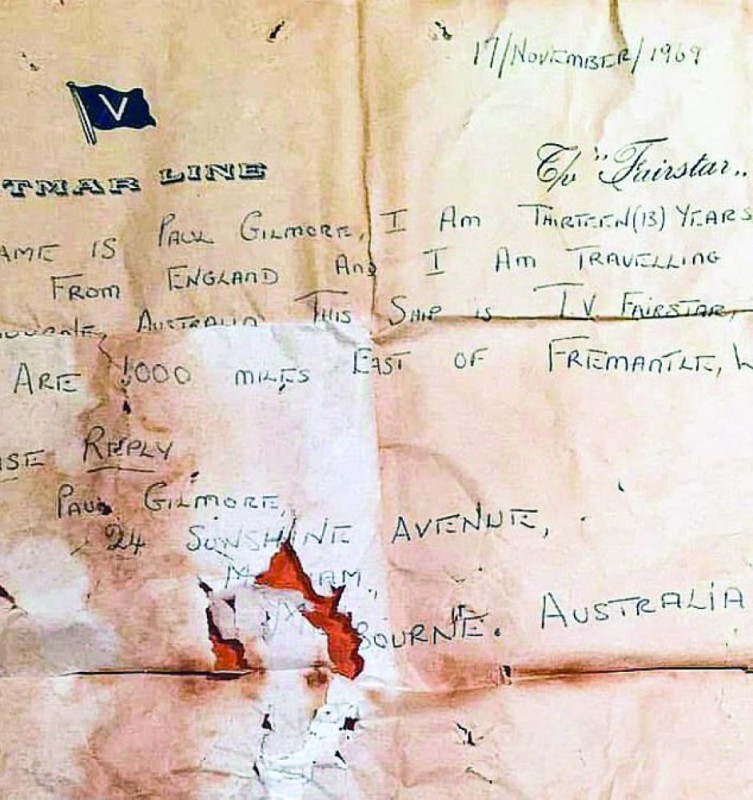 17/NOVEMBER/1969
V
TMAR LINE
T/v "Fairstar"
AME IS PAUL GILMORE, I AM THIRTEEN(13) YEARS
FROM ENGLAND AND I AM TRAVELLING
OURNE, AUSTRALIA THIS SHIP IS T.V. FAIRSTAR,
ARE 1000 MILES EAST OF FREMANTLE, W
SE REPLY
PAUL GILMORE,
24 SUNSHINE AVENUE,
M AM,
BOURNE. AUSTRALIA